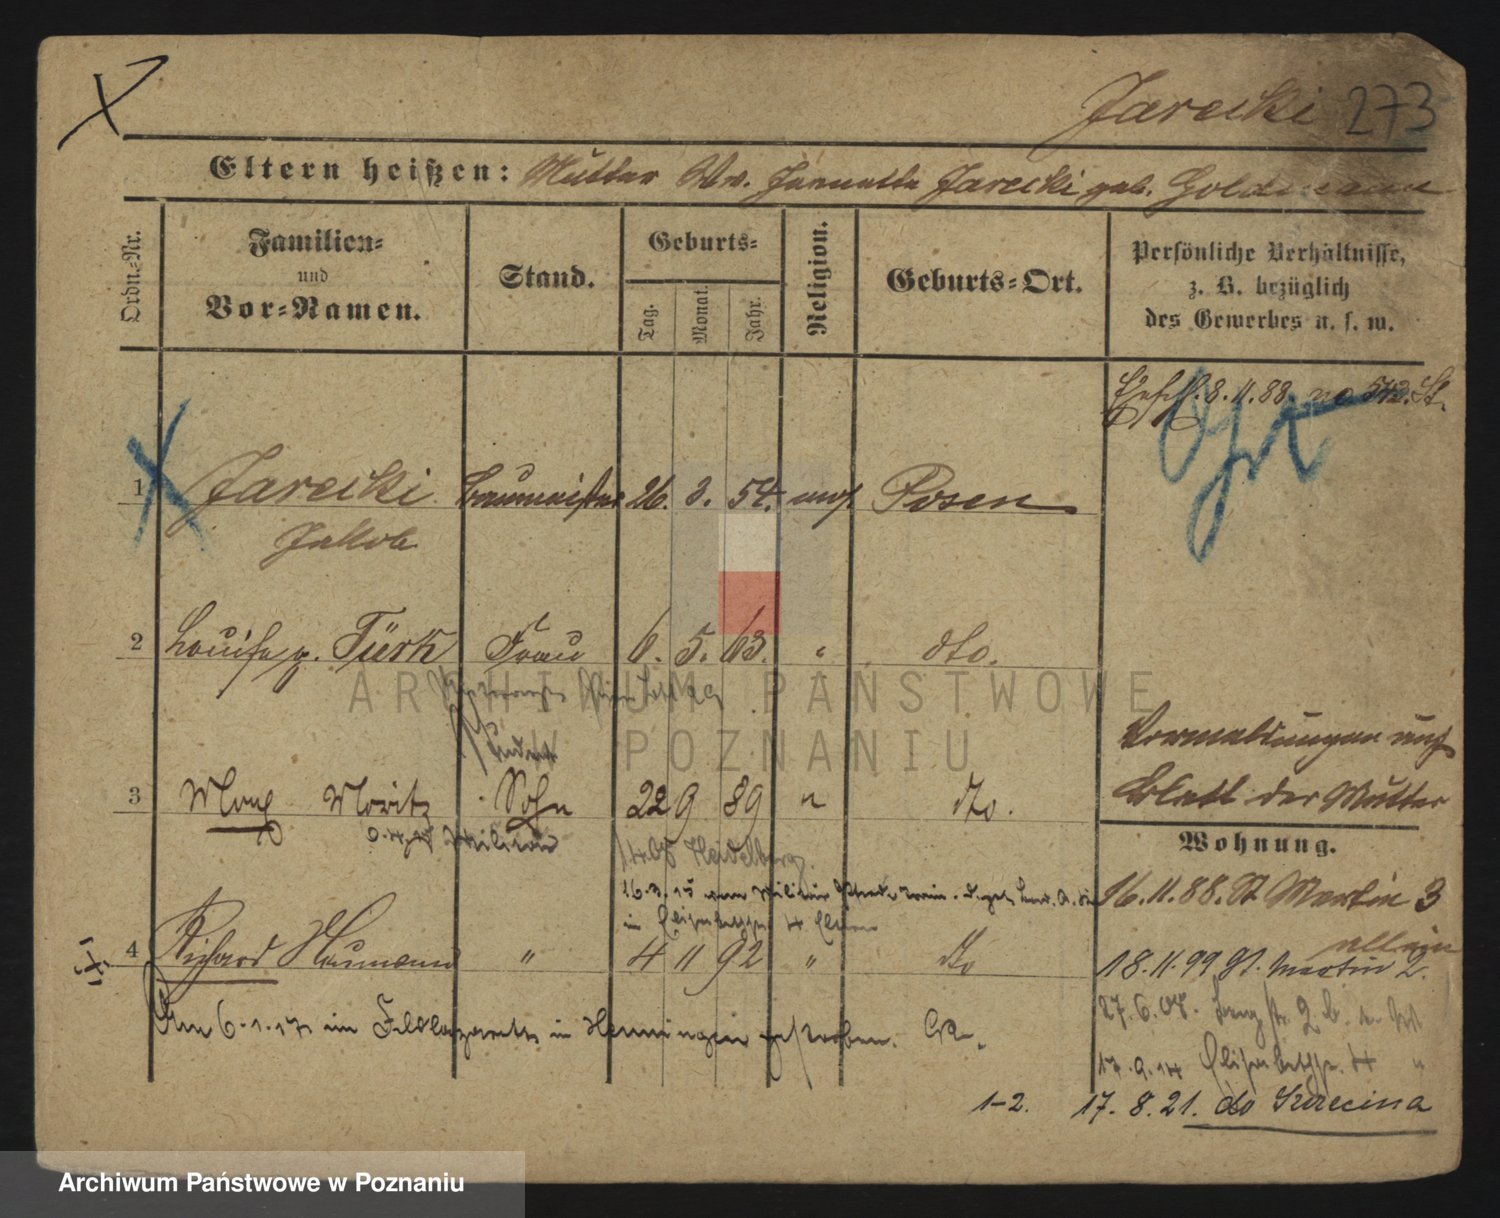 Jarecki 273
Eltern heißen: Mutter Ww. Jeanette Jarecki geb. Goldmann
Ordn.-Nr.
Familien-
und
Vor-Namen.
Stand.
Geburts-
Tag.
Monat.
Jahr.
Religion.
Geburts-Ort.
Persönliche Verhältnisse,
z. B. bezüglich
des Gewerbes u. s. w.
8.11.88. no 543. St.
1 Jarecki Baumeister 26. 3. 54. mos. Posen
Jakob
2 Louise g. Türk Frau 6. 5. 63. " dto.
ARCHIWUM PAŃSTWOWE
W POZNANIU
Student
Vermeldungen auf
Blatt der Mutter
3 Max Moritz Sohn 22 9 89 " dto.
Militär
Wohnung.
Heidelberg
16.3.15 zum Militär
16.11.88. St Martin 3
in Elisabethstr. 4 Eltern
4 Richard Naumann " 4 11 92 " dto
allein
18.11.99 St. Martin 2.
Am 6.1.17 im Feldlazarett in Henningen gestorben.
27.6.07. 2
17.9.14 Elisabethstr. 4 "
1-2. 17. 8. 21. do Szczecina
Archiwum Państwowe w Poznaniu